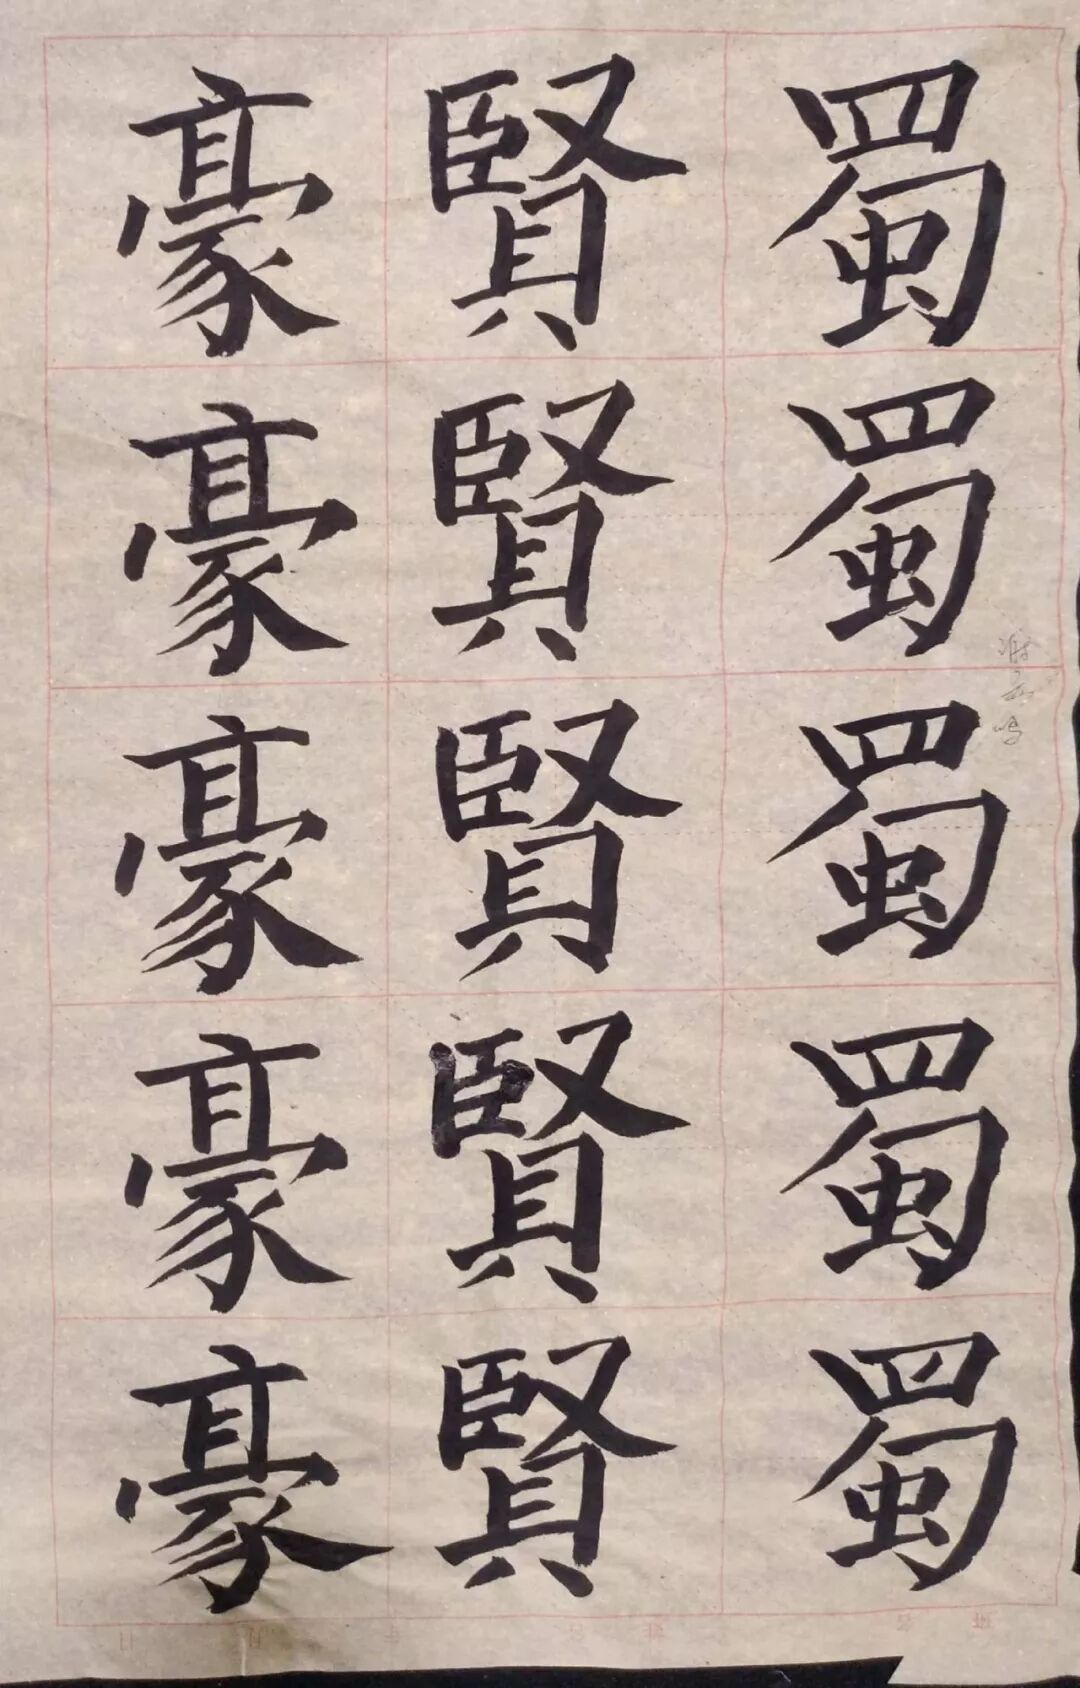 蜀蜀蜀蜀蜀
賢賢賢賢賢
豪豪豪豪豪